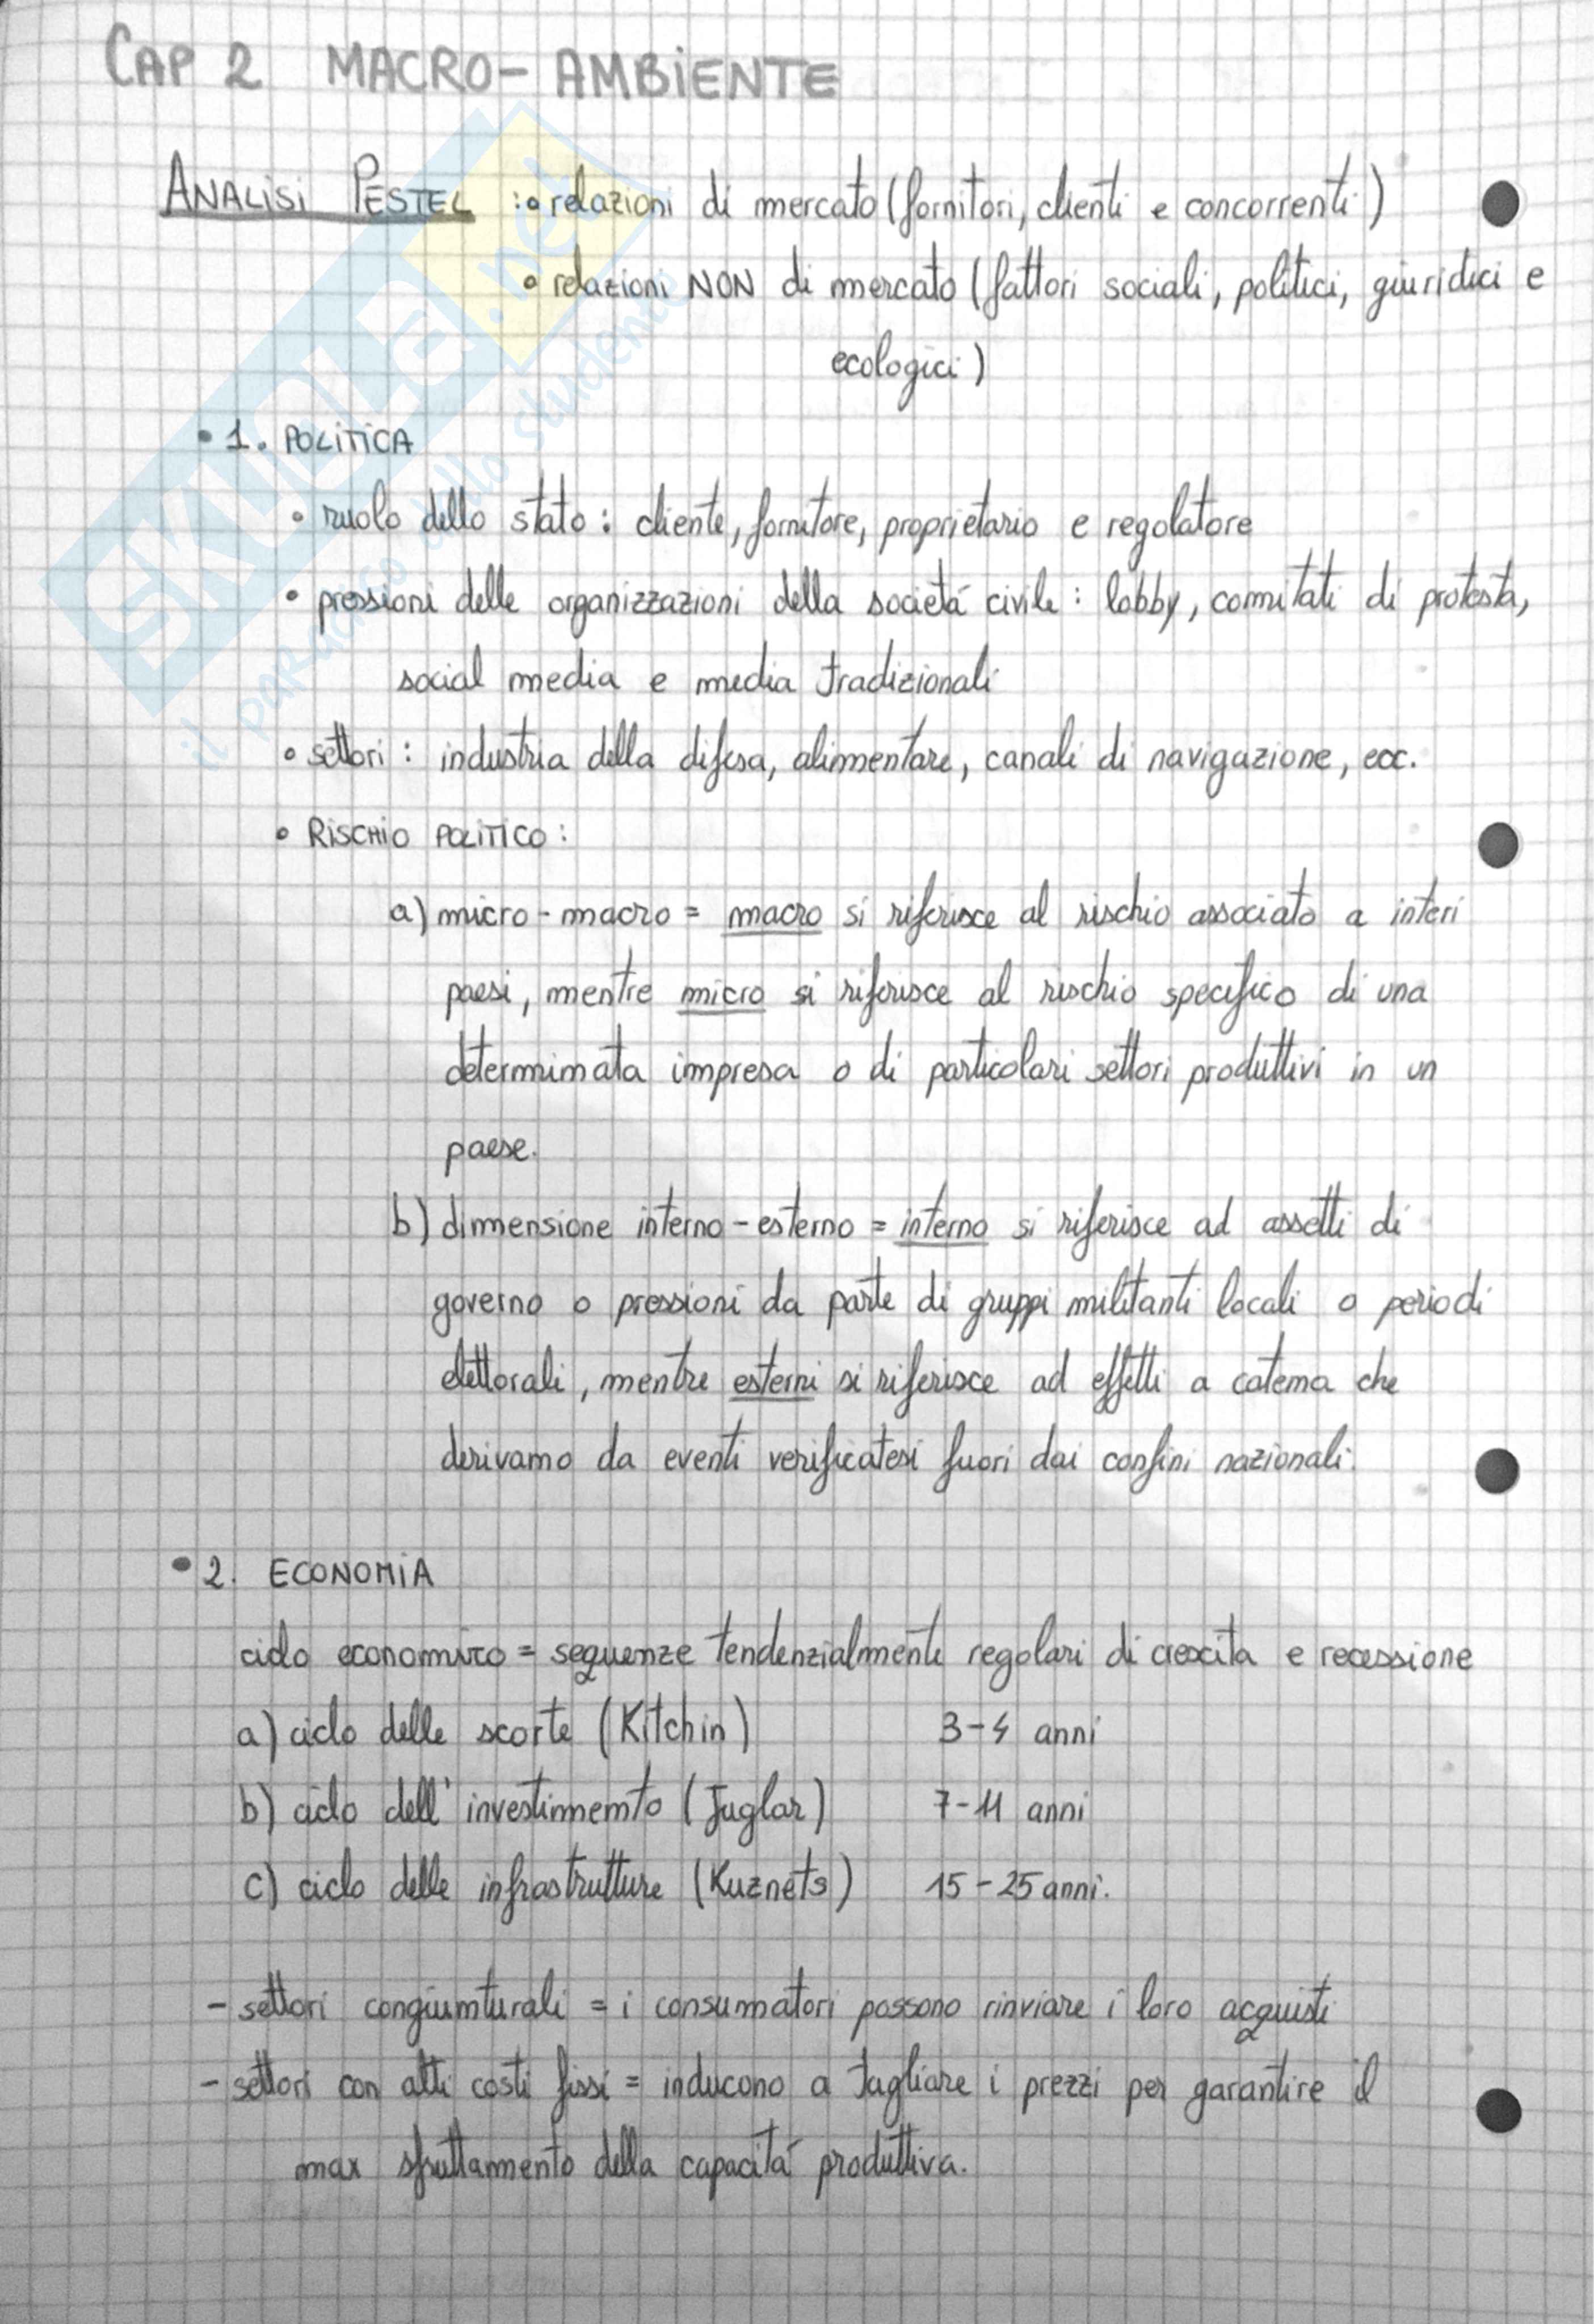 CAP 2 MACRO-AMBIENTE
ANALISI PESTEL : • relazioni di mercato (fornitori, clienti e concorrenti)
• relazioni NON di mercato (fattori sociali, politici, giuridici e
ecologici)
• 1. POLITICA
• ruolo dello stato : cliente, fornitore, proprietario e regolatore
• pressioni delle organizzazioni della società civile : lobby, comitati di protesta,
social media e media tradizionali
• settori : industria della difesa, alimentare, canali di navigazione, ecc.
• RISCHIO POLITICO :
a) micro - macro = macro si riferisce al rischio associato a interi
paesi, mentre micro si riferisce al rischio specifico di una
determinata impresa o di particolari settori produttivi in un
paese.
b) dimensione interno - esterno = interno si riferisce ad assetti di
governo o pressioni da parte di gruppi militanti locali o periodi
elettorali, mentre esterni si riferisce ad effetti a catena che
derivano da eventi verificatesi fuori dai confini nazionali.
• 2. ECONOMIA
ciclo economico = sequenze tendenzialmente regolari di crescita e recessione
a) ciclo delle scorte (Kitchin) 3-4 anni
b) ciclo dell' investimento (Juglar) 7-11 anni
c) ciclo delle infrastrutture (Kuznets) 15-25 anni.
- settori congiunturali = i consumatori possono rinviare i loro acquisti
- settori con alti costi fissi = inducono a tagliare i prezzi per garantire il
max sfruttamento della capacità produttiva.
SKUOLA.net
il paradiso dello studente